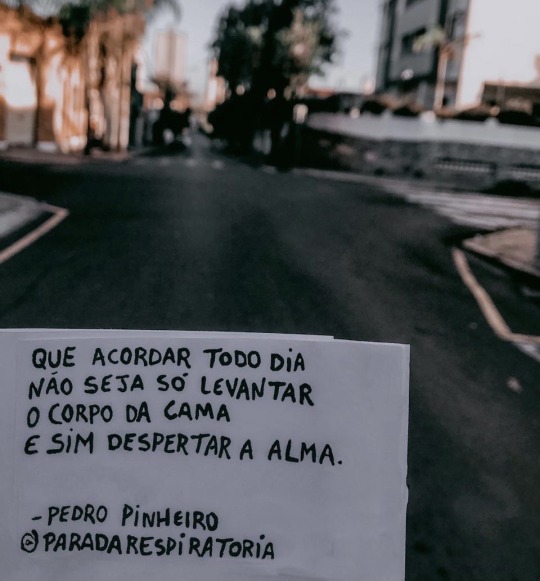 QUE ACORDAR TODO DIA
NÃO SEJA SÓ LEVANTAR
O CORPO DA CAMA
E SIM DESPERTAR A ALMA.
-PEDRO PINHEIRO
@PARADARESPIRATORIA